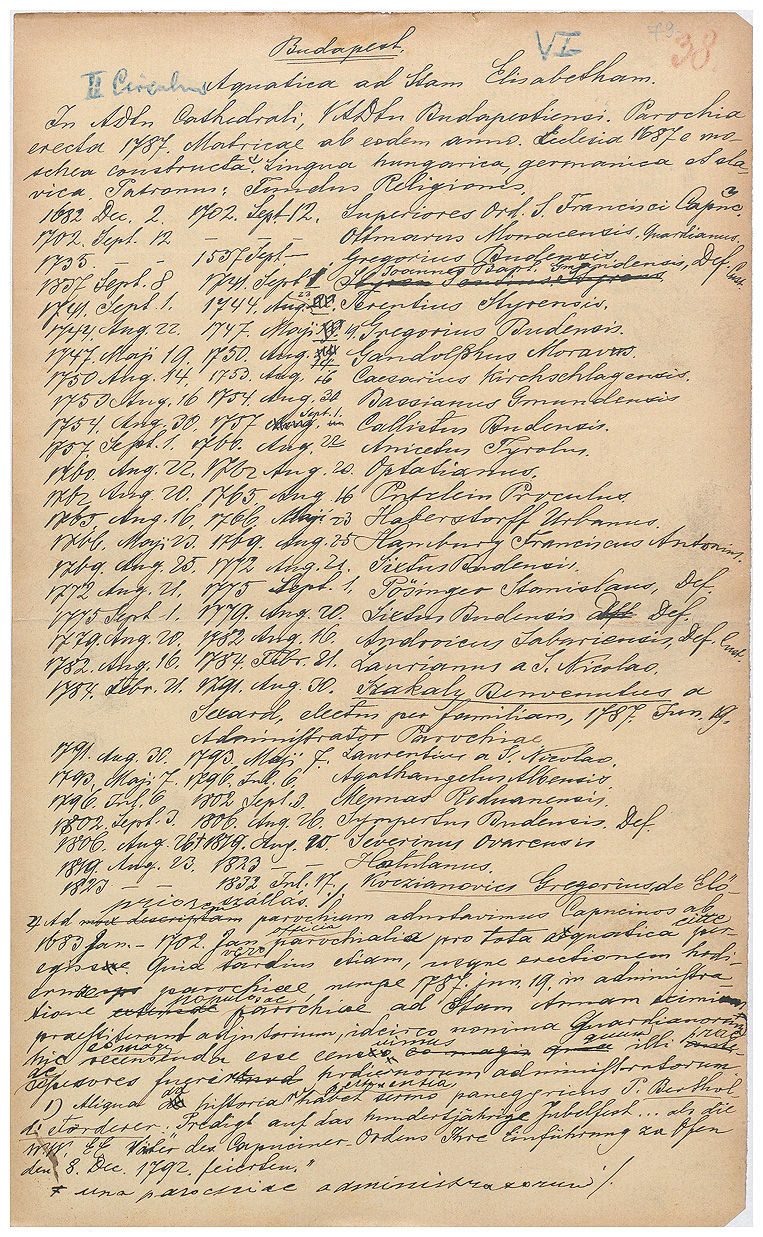 Budapest.
VI
79
38
II Circulus Aquatica ad Stam Elisabetham.
In ADtu Cathedrali, VADtu Budapestiensi. Parochia
erecta 1787. Matricae ab eodem anno. Ecclesia 1687 e mo-
schea constructa. Lingua hungarica, germanica et sla-
vica. Patronus: Fundus Religionis.
1682 Dec. 2. 1702. Sept 12. Superiores Ord. S. Francisci Capuc.
1702. Sept. 12 — — — Ottmarus Monacensis, Guardianus.
1735 — — 1537 Sept. — Gregorius Budensis.
1737 Sept. 8 1741. Sept 1 Joannes Bapt. Gmundensis, Def. Cust.
1741. Sept. 1. 1744. Aug. 22 Terentius Styrensis.
1744. Aug. 22. 1747. Maji 19 Gregorius Budensis.
1747. Maji 19. 1750. Aug. 14 Gandolphus Moravus.
1750 Aug. 14. 1753. Aug. 16 Caesarius Kirchschlagensis.
1753 Aug. 16 1754. Aug. 30 Bassianus Gmundensis
1754. Aug. 30. 1757 Sept. 1. Callistus Budensis.
1757. Sept. 1. 1760. Aug. 22 Anicetus Tyrolus.
1760. Aug. 22. 1762 Aug. 20. Optatianus.
1762 Aug. 20. 1765 Aug. 16 Putzlein Proculus.
1765. Aug. 16. 1766. Maji. 23 Haberstorff Urbanus.
1766. Maji 23. 1769. Aug. 25 Hamburg Franciscus Antonius.
1769. Aug. 25. 1772 Aug. 21. Sixtus Budensis.
1772 Aug. 21. 1775 Sept. 1. Pösinger Stanislaus, Def.
1775 Sept. 1. 1779. Aug. 20. Sixtus Budensis Def.
1779. Aug. 20. 1782 Aug. 16. Andronicus Sabariensis, Def. Cust.
1782. Aug. 16. 1784. Febr. 21. Laurianus a S. Nicolao.
1784. Febr. 21. 1791. Aug. 30. Szakaly Benvenutus a
Sexard, electus per familiam, 1787. Jun. 19.
Administrator Parochiae
1791. Aug. 30. 1793. Maji 7. Laurentius a S. Nicolao.
1793. Maji 7. 1796. Jul. 6. Agathangelus Albensis
1796. Jul. 6. 1802 Sept. 3. Mennas Roduanensis.
1802. Sept. 3. 1806. Aug. 26 Sympertus Budensis. Def.
1806. Aug. 26 † 1819. Aug. 20. Severinus Ovarensis
1819. Aug. 23. 1823 — —
1823 — — 1832. Jul. 17. Koczianovics Gregorius de Elő-
szállás. 1/1
Ad parochiam adnotavimus Capucinos ab
1683 Jan. — 1702. Jan. officia parochialia pro tota Aquatica
Quia vero tardius etiam, usque erectionem hodi-
ernae parochiae nempe 1787. jun. 19, in administra-
tione populosae parochiae ad Stam Annam
praestiterunt adjutorium, idcirco nomina Guardianorum
hic recensenda esse illi
fuerint hodiernorum administratorum.
1) Aliqua historia habet sermo panegyricus P. Berthol-
di Förderer: Predigt auf das hundertjährige Jubelfest... als die
WW. EE. Väter des Capuciner Ordens Ihre Einführung zu Ofen
den 8. Dec. 1792. feierten."
+ una parochiae administratorum 1/.